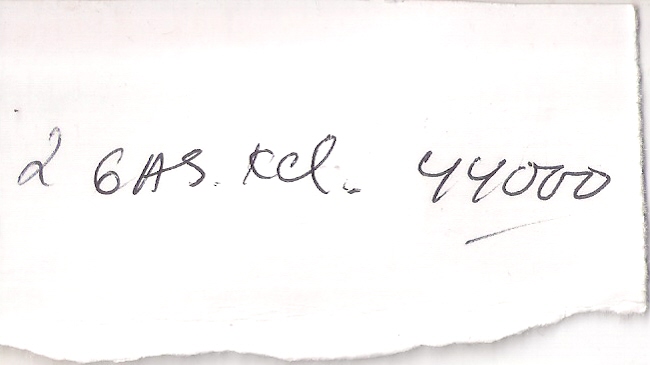 2 GAS. Kcl. 44000